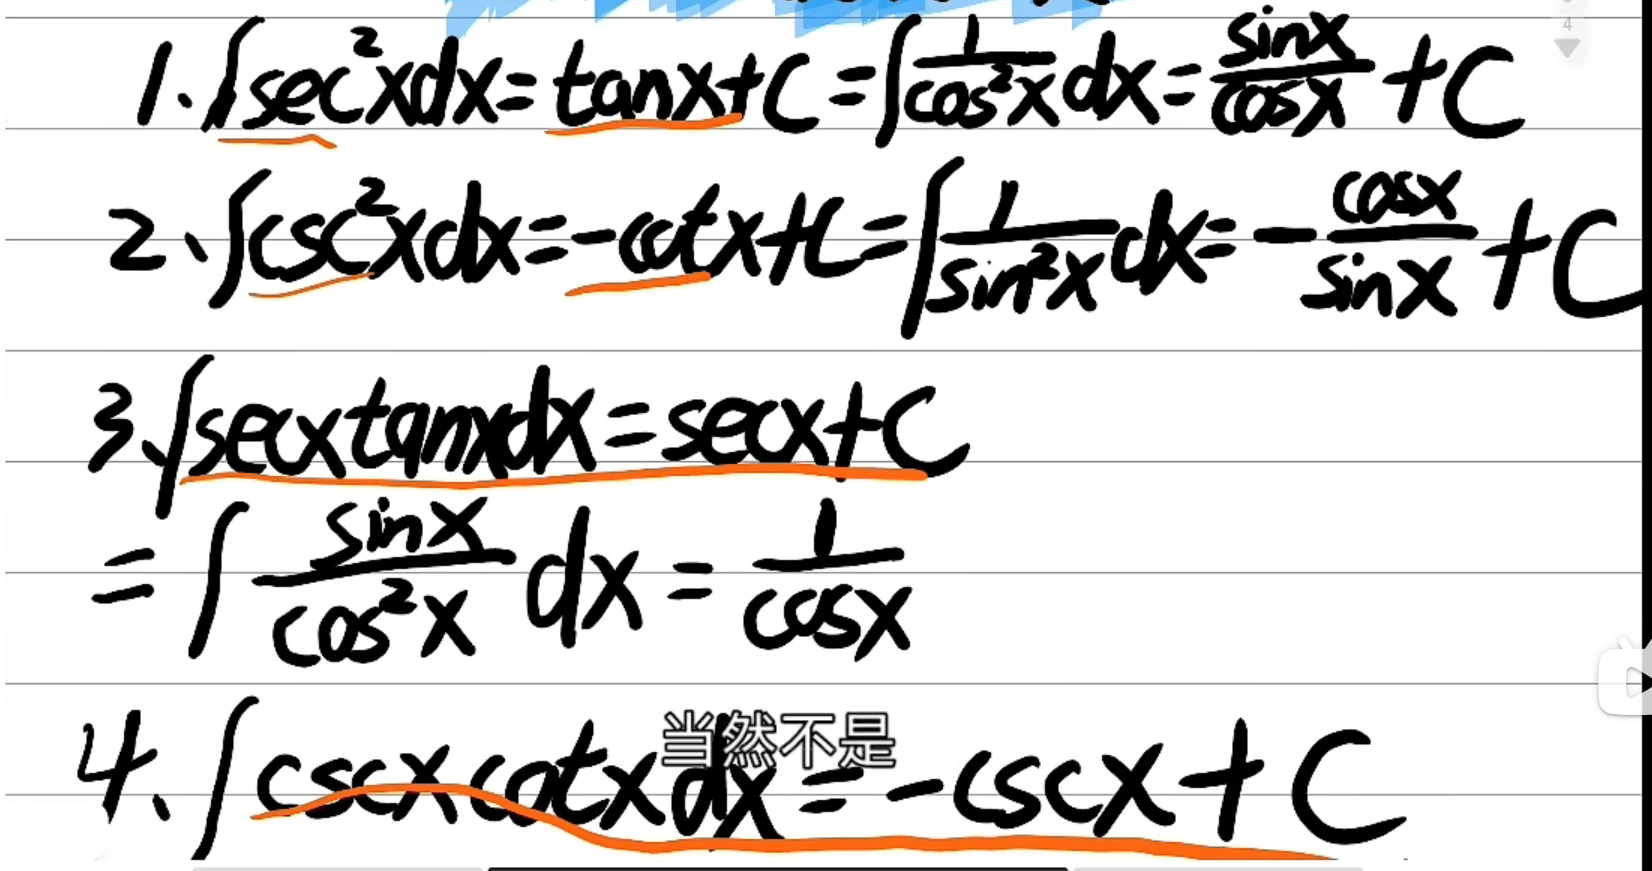 4
1. ∫sec²xdx=tanx+C=∫1/cos²x dx=sinx/cosx+C
2、∫csc²xdx=-cotx+C=∫1/sin²x dx=-cosx/sinx+C
3、∫secxtanxdx=secx+C
=∫sinx/cos²x dx=1/cosx
4、∫cscxcotxdx=-cscx+C
当然不是